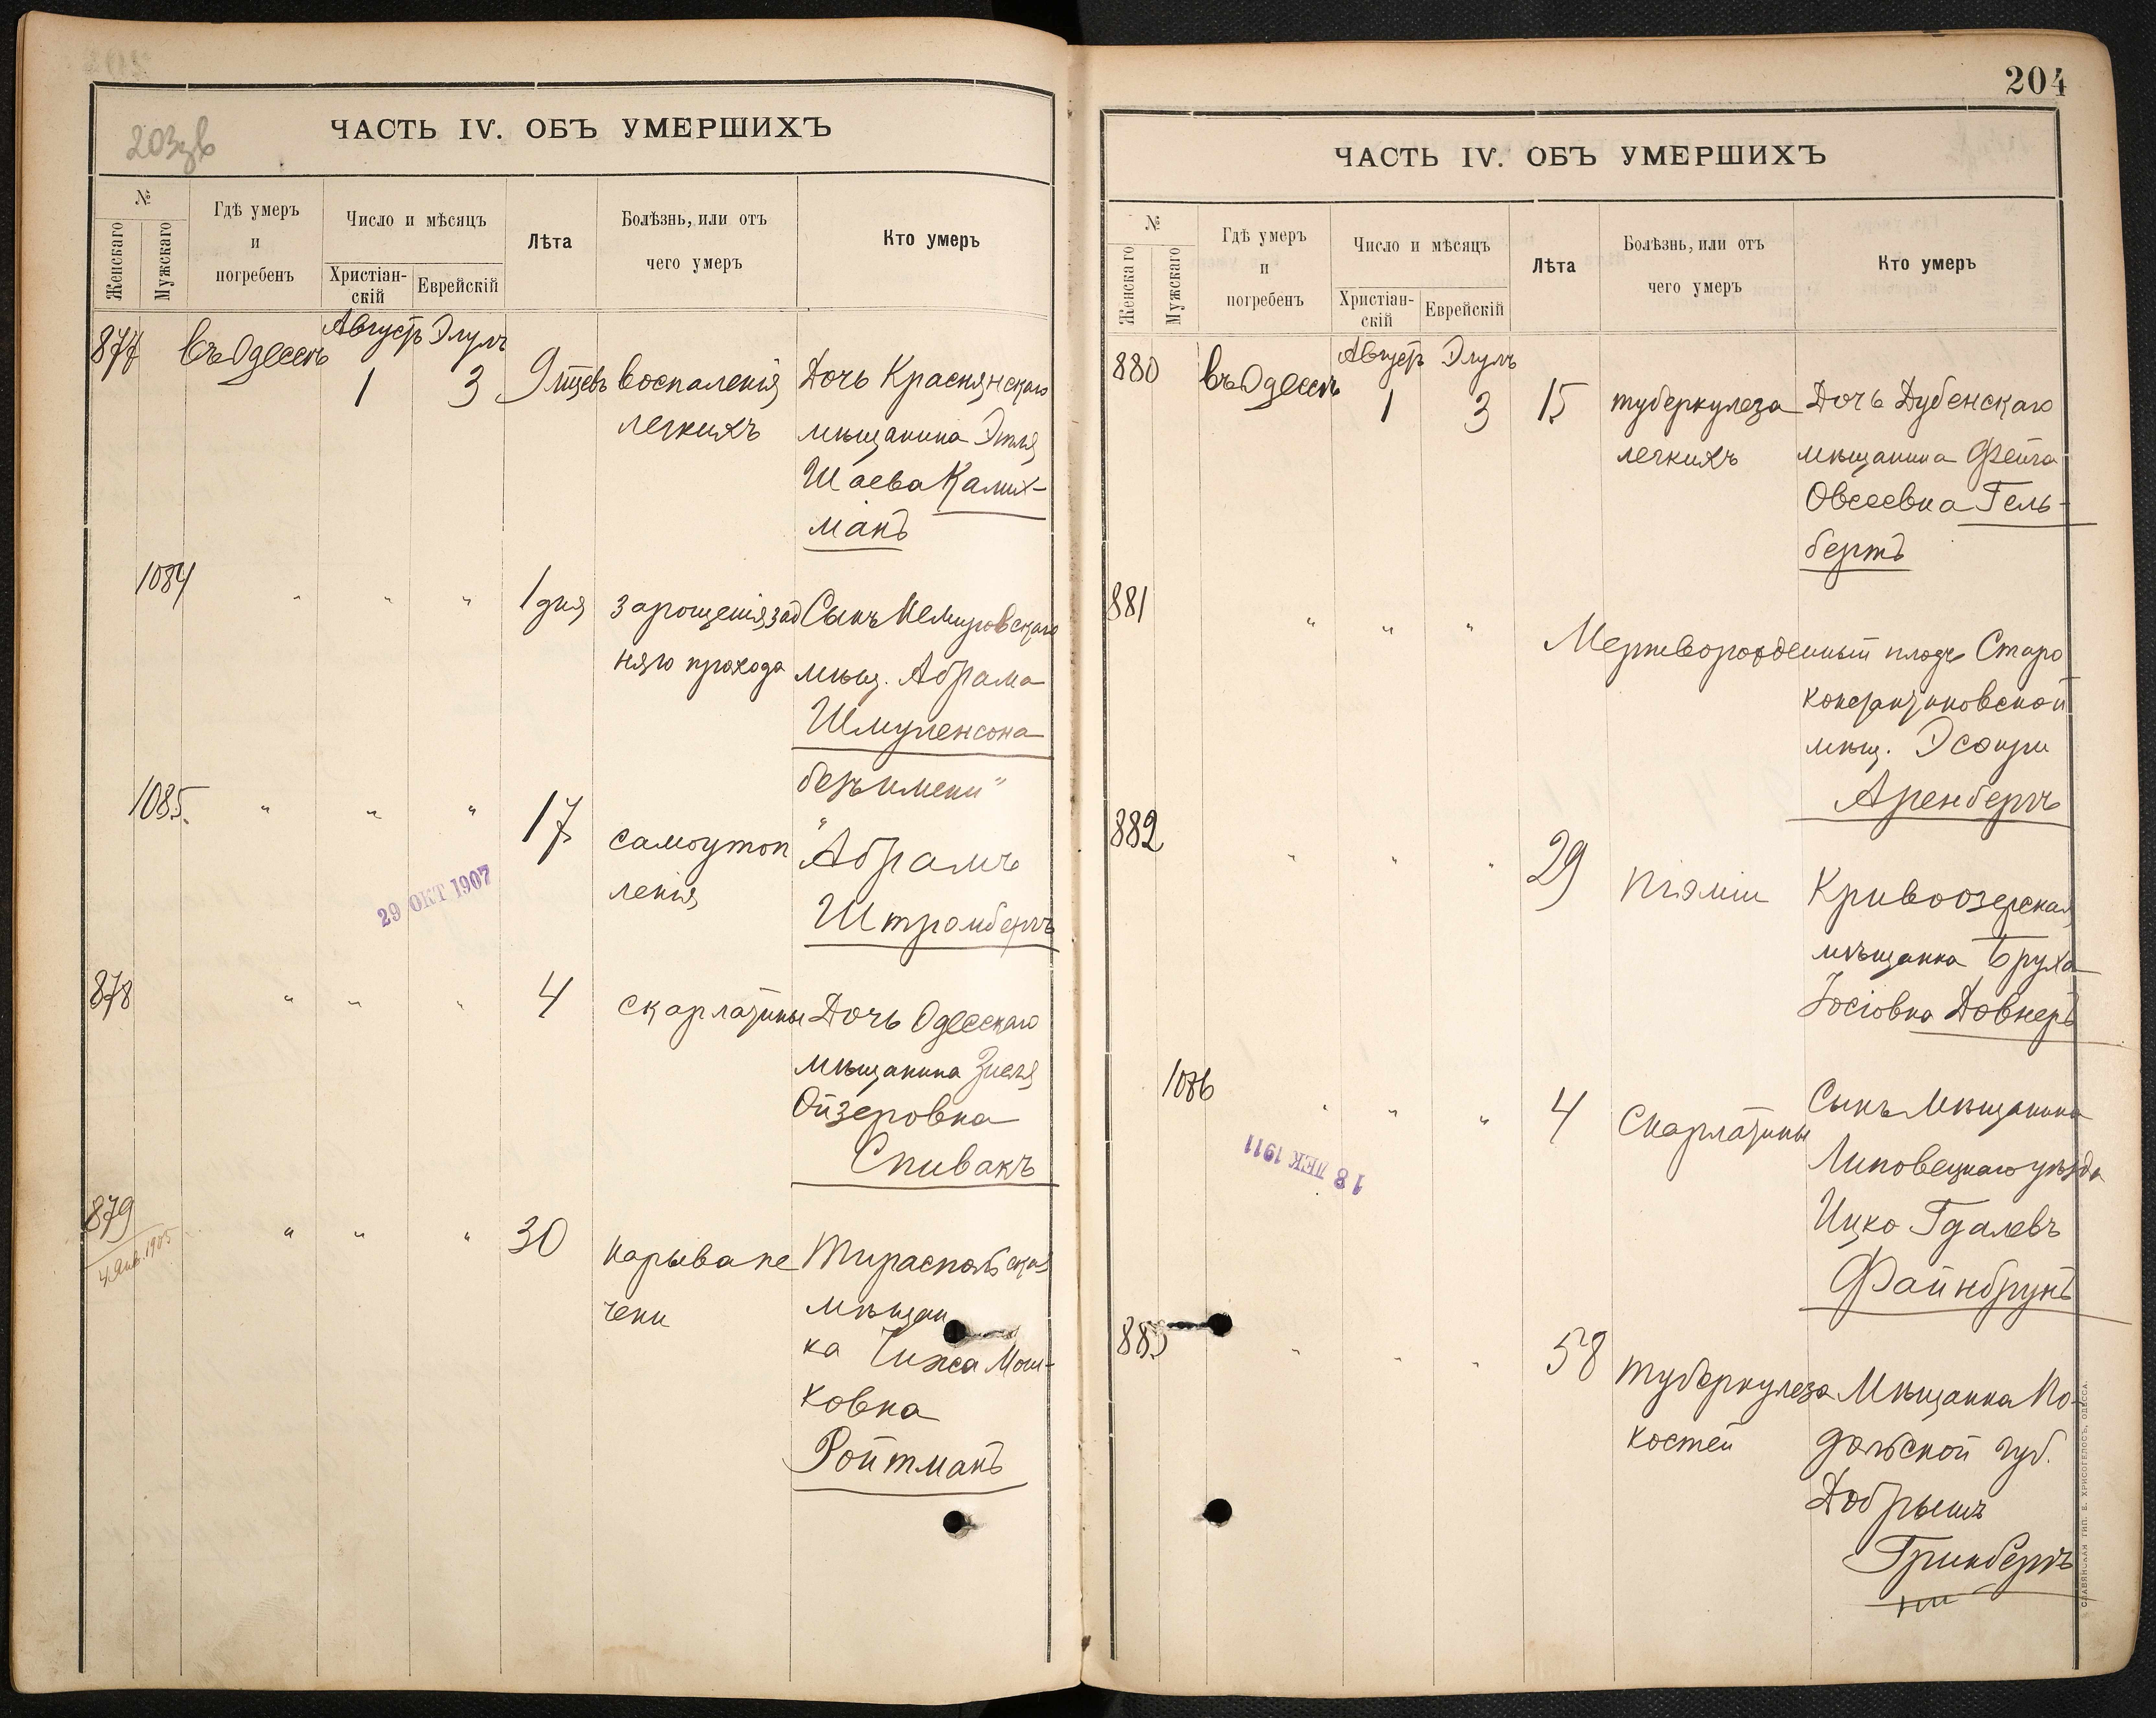 203зв
ЧАСТЬ IV. ОБЪ УМЕРШИХЪ
№
Женскаго
Мужскаго
Гдѣ умеръ
и
погребенъ
Число и мѣсяцъ
Христіан-
скій
Еврейскій
Лѣта
Болѣзнь, или отъ
чего умеръ
Кто умеръ
Августъ Элулъ
877 въ Одессѣ 1 3 9 мцевъ воспаленія Дочь Краснянскаго
легкихъ мѣщанина Этля
Шаева Калих-
манъ
1084 " " " 1 дня зарощенія зад Сынъ Немировскаго
няго прохода мѣщ. Абрама
Шмуленсона
безъ имени"
1085. " " " 17 самоутоп "Абрамъ
ленія Штромбергъ
29 ОКТ 1907
878 " " " 4 скарлатины Дочь Одесскаго
мѣщанина Зисля
Ойзеровна
Спивакъ
879 " " " 30 нарыва пе Тираспольская
4 Янв. 1905
чени мѣщан
ка Чижа Мош-
ковна
Ройтманъ
204
ЧАСТЬ IV. ОБЪ УМЕРШИХЪ
№
Женскаго
Мужскаго
Гдѣ умеръ
и
погребенъ
Число и мѣсяцъ
Христіан-
скій
Еврейскій
Лѣта
Болѣзнь, или отъ
чего умеръ
Кто умеръ
Августъ Элулъ
880 въ Одессѣ 1 3 15 туберкулеза Дочь Дубенскаго
легкихъ мѣщанина Фейга
Овсеевна Гель-
бертъ
881 " " " Мертворожденный плодъ Старо
константиновской
мѣщ. Эсѳири
Аренбергъ
882 " " " 29 піэміи Кривоозерская
мѣщанка Бруха
Іосіовна Довнеръ
1086 " " " 4 Скарлатины Сынъ Мѣщанина
Липовецкаго уѣзда
Ицко Гдалевъ
Файнбрунъ
18 ДЕК 1911
883 " " " 58 туберкулеза Мѣщанка По-
костей дольской губ.
Добрышъ
Гринбергъ
СЛАВЯНСКАЯ ТИП. Е. ХРИСОГЕЛОСЪ, ОДЕССА.